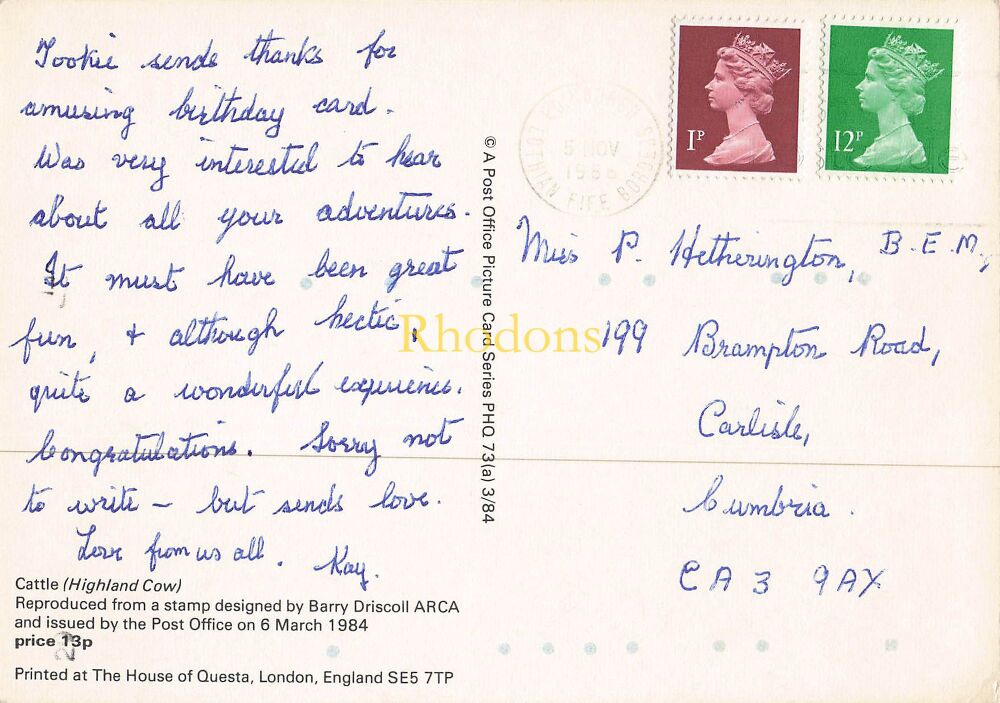 Tookie sends thanks for
amusing birthday card.
Was very interested to hear
about all your adventures.
It must have been great
fun, & although hectic,
quite a wonderful experience.
Congratulations. Sorry not
to write – but sends love.
Love from us all. Kay.
Cattle (Highland Cow)
Reproduced from a stamp designed by Barry Driscoll ARCA
and issued by the Post Office on 6 March 1984
price 13p
Printed at The House of Questa, London, England SE5 7TP
© A Post Office Picture Card Series PHQ 73(a) 3/84
1P
12P
5 NOV
LOTHIAN FIFE BORDERS
Miss P. Hetherington, B.E.M.,
199 Brampton Road,
Carlisle,
Cumbria.
CA3 9AX
Rhodons